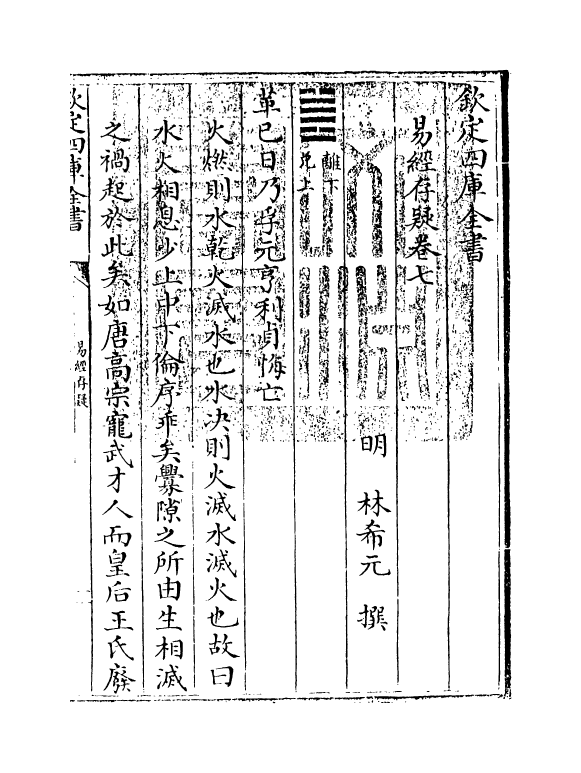 欽定四庫全書
易經存疑卷七
明 林希元 撰
離下
兌上
革巳日乃孚元亨利貞悔亡
火燃則水乾火滅水也水決則火滅水滅火也故曰
水火相息少上中下倫序乖矣釁隙之所由生相滅
之禍起於此矣如唐高宗寵武才人而皇后王氏廢
欽定四庫全書
易經存疑
一